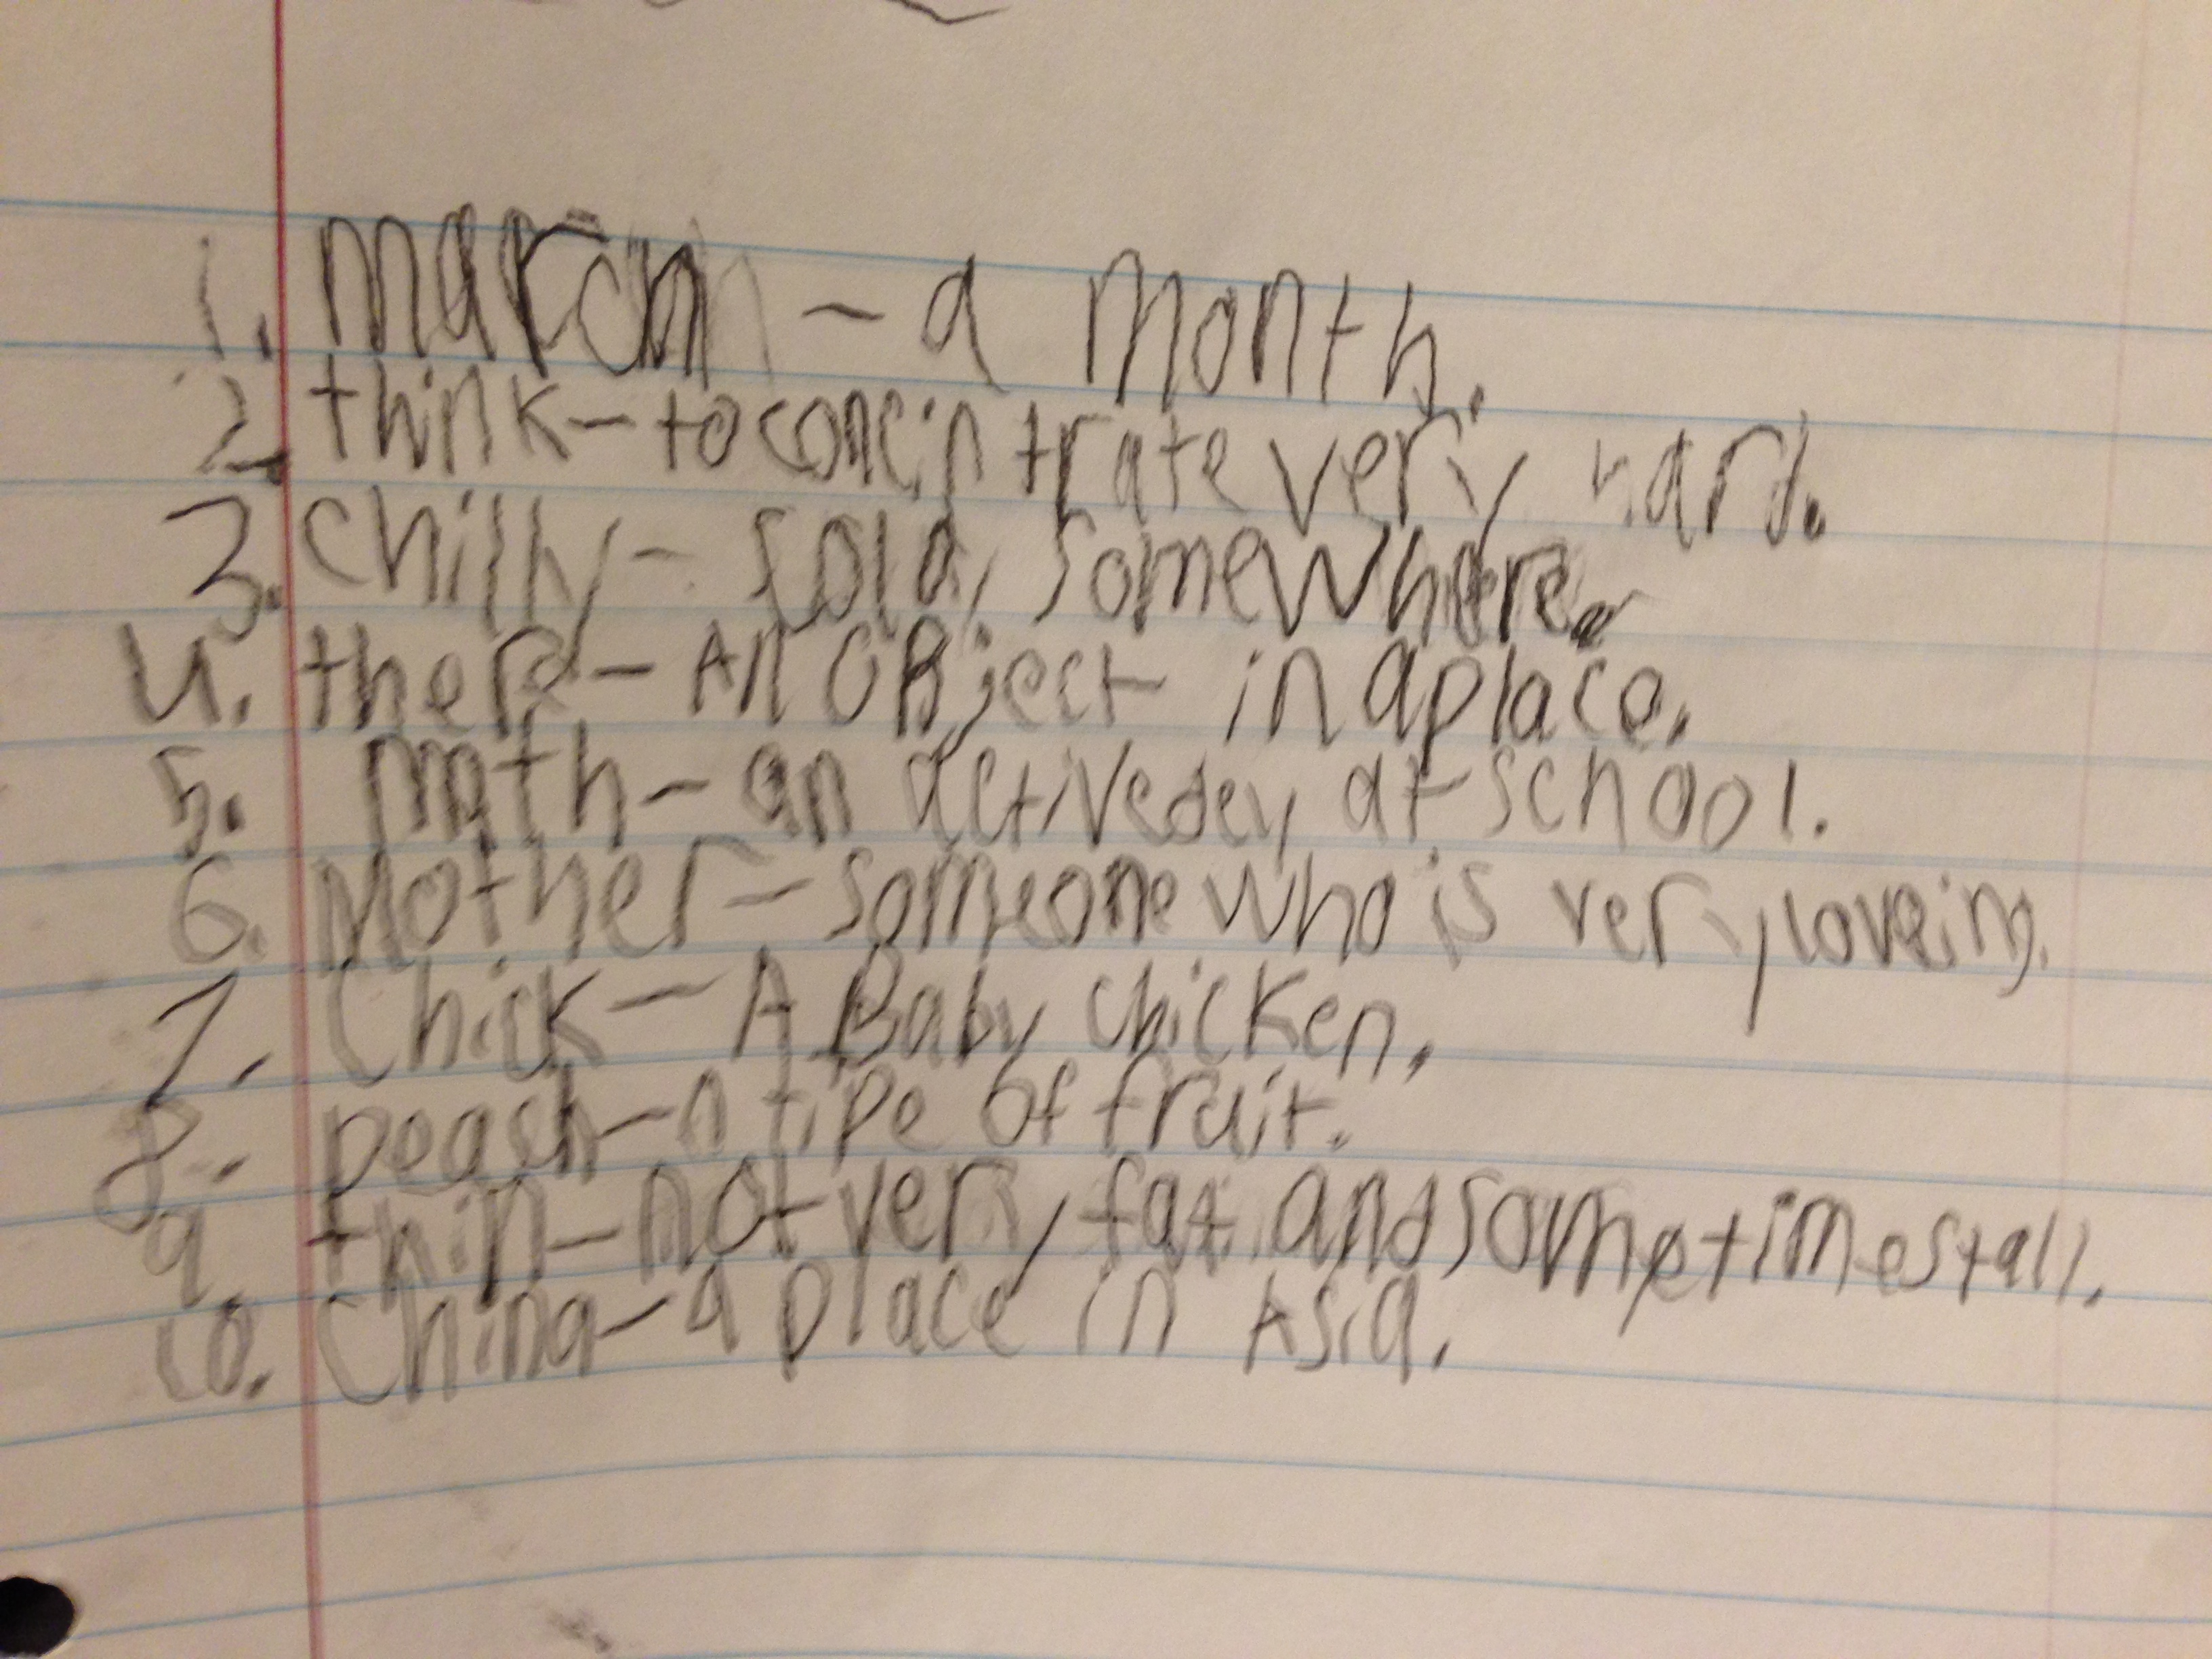 1. march - a month.
2. think - to concintrate very hard.
3. chilly - cold, somewhere.
4. there - An OBject in a place.
5. math - an activedey at school.
6. Mother - someone who is very loveing.
7. Chick - A Baby chicken.
8. peach - a tipe of fruit.
9. thin - not very fat and sometimes tall.
10. China - a place in Asia.